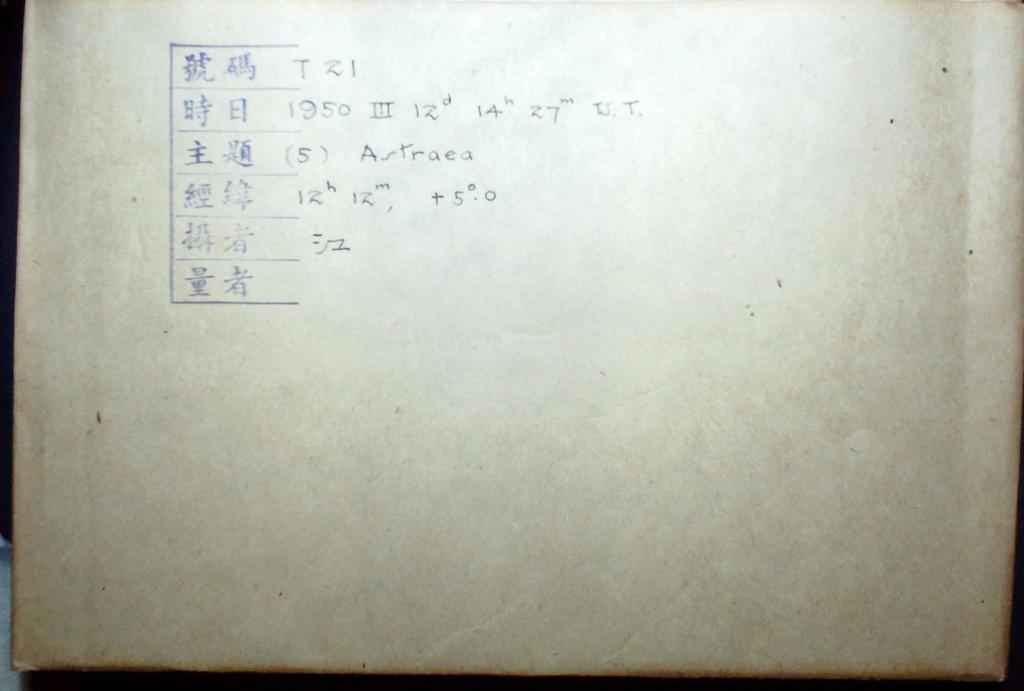 號碼 T 21
時日 1950 III 12ᵈ 14ʰ 27ᵐ U.T.
主題 (5) Astraea
經緯 12ʰ 12ᵐ, +5°.0
攝者 江
量者